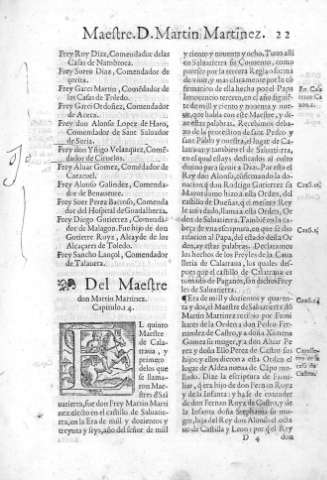 Maestre. D. Martin Martinez. 22
Frey Roy Diaz, Comendador delas
Casas de Nambroca.
Frey Suero Diaz, Comendador de
Frey Garci Martin, Comẽdador de
las Casas de Toledo.
Frey Garci Ordoñez, Comendador
de Aceca.
Frey don Alonso Lopez de Haro,
Comendador de Sant Saluador
de Soria.
Frey don Yñigo Velazquez, Comẽ
dador de Ciruelos.
Frey Aluar Gomez, Comẽdador de
Caracuel.
Frey Alonso Galindez, Comenda-
dor de Benauente.
Frey Suer Perez Barroso, Comenda
dor del Hospital de Guadalherza.
Frey Diego Gutierrez, Comenda-
dor de Malagon. Fue hijo de don
Gutierre Ruyz, Alcayde de los
Alcaçares de Toledo.
Frey Sancho Lançol, Comendador
de Talauera.
Del Maestre
don Martin Martinez.
Capitulo.14.
EL quinto
Maestre
de Cala-
traua, y
primero
delos que
se llama-
ron Mae-
stres d'Sal
uatierra, fue don Frey Martin Marti
nez electo en el castillo de Saluatie-
rra, en la Era de mil y dozientos y
treynta y seys, año del señor de mill
y ciento y nouenta y ocho. Tuuo alli
en Saluatierra su Conuento, como
parece por la tercera Regla o forma
de viuir, y mas claro por la confir-
mation de ella hecha por el Papa
Innocencio tercero, en el año siguiẽ-
te de mil y ciento y nouenta y nue-
ue, que habla con este Maestre, y de-
zi estas palabras. Recebimos deba-
xo de la proteccion de sant Pedro y
sant Pablo y nuestra, el lugar de Ca-
latraua y tambien el de Saluatierra,
en el qual estays dedicados al culto
diuino para seruir a Dios. Asi por esto el
Rey don Alonso, confirmando la do
nacion q̃ don Rodrigo Gutierrez su
Mayordomo hizo a esta Orden, del
castillo de Dueñas, q̃ el mesmo Rey
le auia dado, llama a esta Orden, Or
den de Saluatierra. Tambien a la ca-
beça de vna escriptura, en que se dio
relacion al Papa, del estado desta Or
den, ay estas palabras. Declaramos
los hechos de los Freyles de la Caua
lleria de Calatraua, los quales des-
pues que el castillo de Calatraua es
tomado de Paganos, son dichos Frey
les de Saluatierra.
¶ Era de mill y dozientos y quaren-
ta y dos, el Maestre de Saluatierra dõ
Martin Martinez recibio por Fami
liares de la Orden a don Pedro Fer-
nandez de Castro, y a doña Ximena
Gomez su muger, y a don Aluar Pe
rez y doña Elio Perez de Castro sus
hijos: y ellos dieron a esta Orden el
lugar de Aldea nueua de cãpo me-
morado. Dize la escriptura de Fami-
liar, q̃ era hijo de don Fernan Royz
y de la Infanta: y ha se de entender
de don Fernan Royz de Castro, y de
la Infanta doña Stephania su mu-
ger, hija del Rey don Alonso el octa
uo de Castilla y Leon: por q̃ el Rey
D 4 don